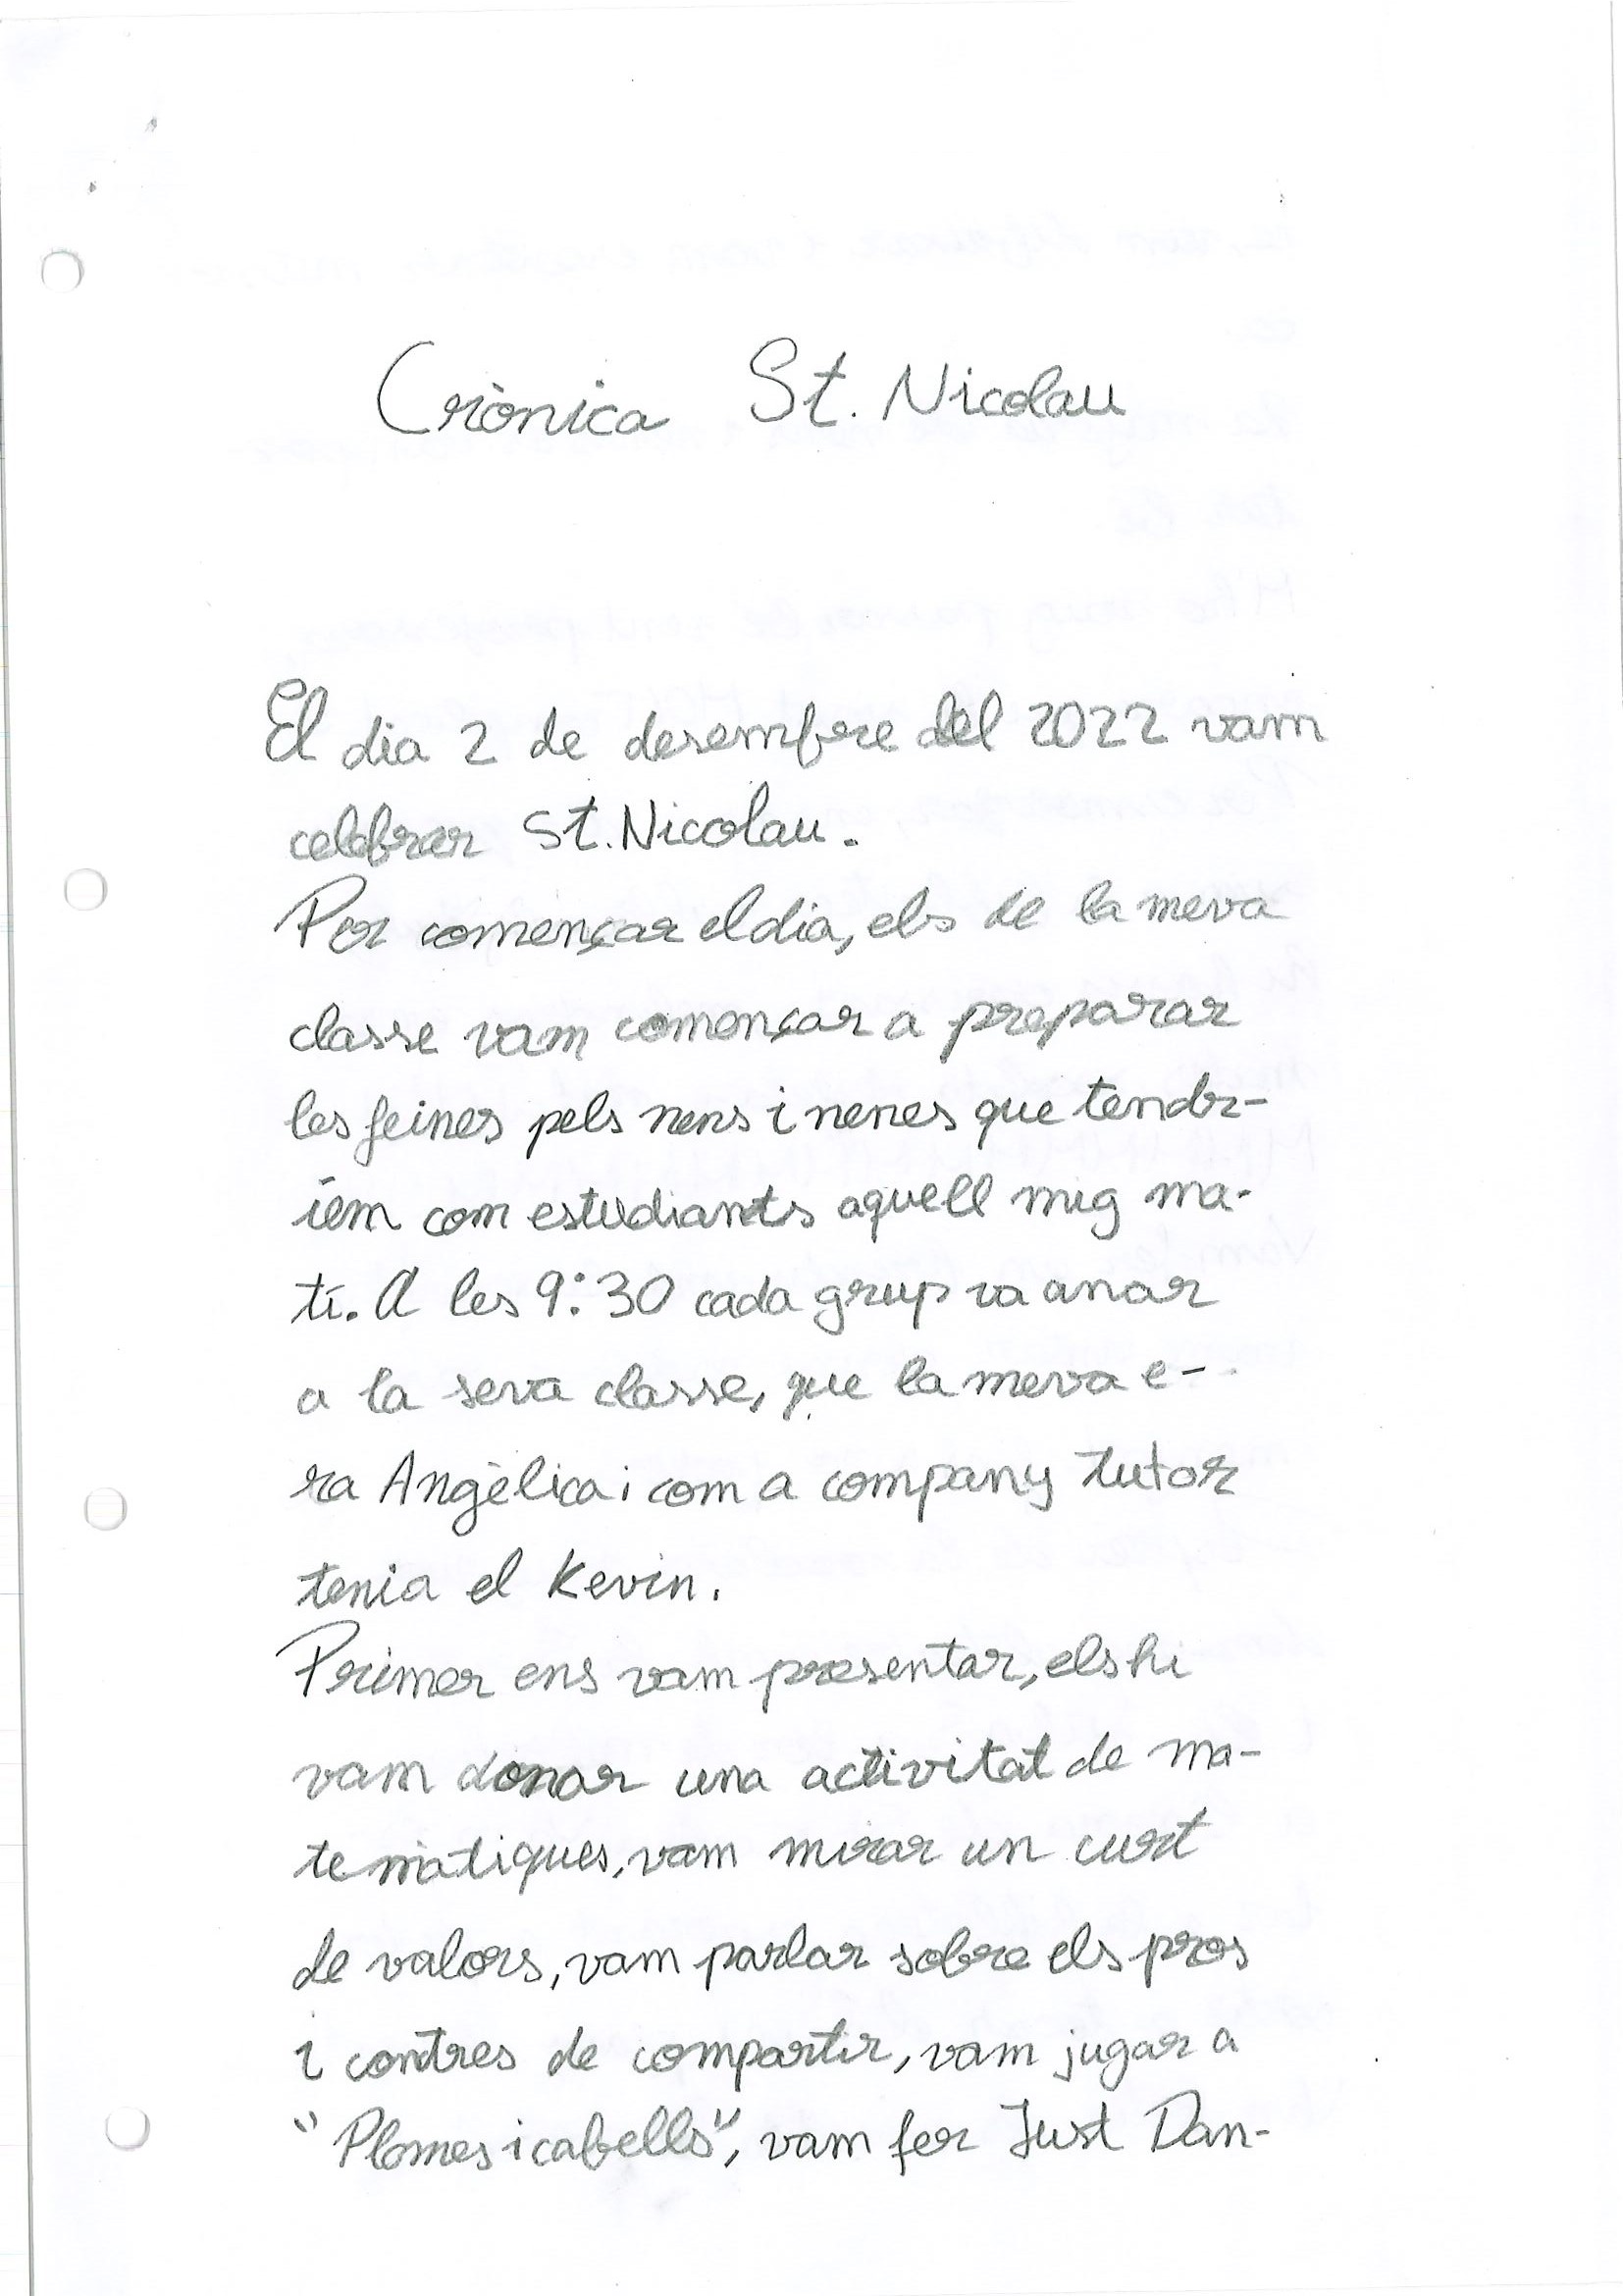 Crònica St. Nicolau
El dia 2 de desembre del 2022 vam
celebrar St. Nicolau.
Per començar el dia, els de la meva
classe vam començar a preparar
les feines pels nens i nenes que tendr-
íem com estudiants aquell mig ma-
tí. A les 9:30 cada grup va anar
a la seva classe, que la meva e-
ra Angèlica i com a company tutor
tenia el Kevin.
Primer ens vam presentar, els hi
vam donar una activitat de ma-
temàtiques, vam mirar un curt
de valors, vam parlar sobre els pros
i contres de compartir, vam jugar a
"Plomes i cabells", vam fer Just Dan-